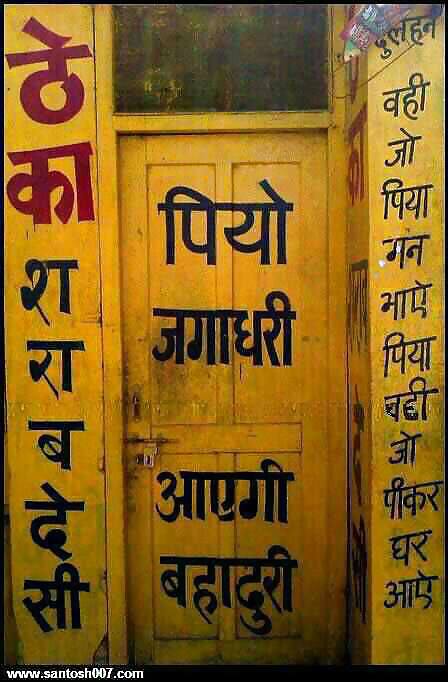 ठे
का
श
रा
ब
दे
सी
पियो
जगाधरी
आएगी
बहादुरी
दुलहन
वही
जो
पिया
मन
भाऐ
पिया
वही
जो
पीकर
घर
आऐ
www.santosh007.com